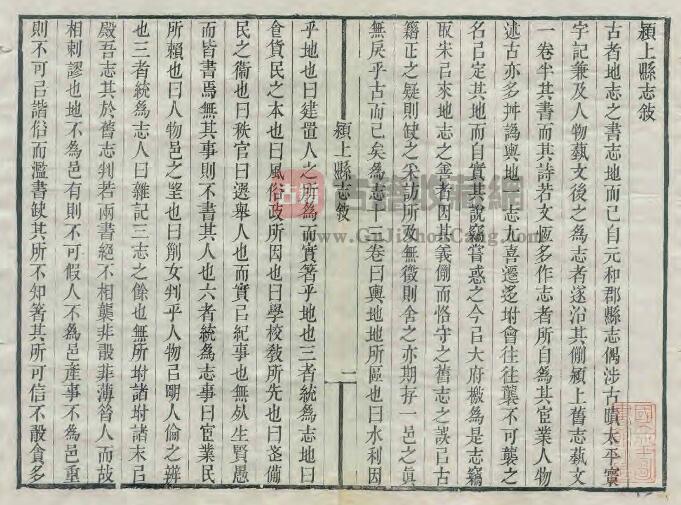 潁上縣志敘
古者地志之書志地而已自元和郡縣志偶涉古蹟太平寰
宇記兼及人物藝文後之為志者遂沿其例潁上舊志藝文
一卷半其書而其詩若文恆多作志者所自為其宦業人物
述古亦多舛譌輿地一志尤喜遷迻坿會往往襲不可襲之
名㠯定其地而自實其說竊嘗惑之今㠯大府檄為是志竊
取宋㠯來地志之善者因其義例而恪守之舊志之誤㠯古
籍正之疑則缺之采訪所及無徵則舍之亦期存一邑之眞
無戾乎古而已矣為志十三卷曰輿地地所區也曰水利因
潁上縣志敘
一
乎地也曰建置人之所為而實著乎地也三者統為志地曰
食貨民之本也曰風俗政所因也曰學校敎所先也曰武備
民之衞也曰秩官曰選舉人也而實㠯紀事也無㒹生賢愚
而皆書焉無其事則不書其人也六者統為志事曰宦業民
所賴也曰人物邑之望也曰列女判乎人物㠯明人倫之辨
也三者統為志人曰雜記三志之餘也無所坿諸坿諸末㠯
殿吾志其於舊志判若兩書絕不相襲非設非薄咎人而故
相剌謬也地不為邑有則不可假人不為邑產事不為邑重
則不可㠯諧俗而濫書缺其所不知著其所可信不設貪多
古籍收藏網
www.GuJiShouCang.com